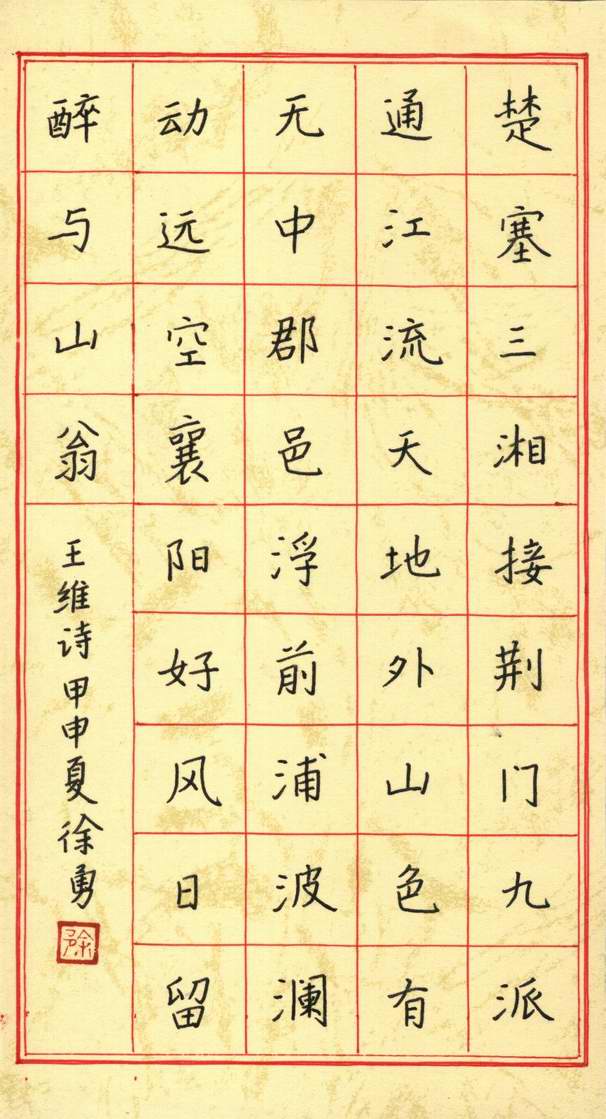 楚塞三湘接荆门九派
通江流天地外山色有
无中郡邑浮前浦波澜
动远空襄阳好风日留
醉与山翁
王维诗甲申夏徐勇
徐